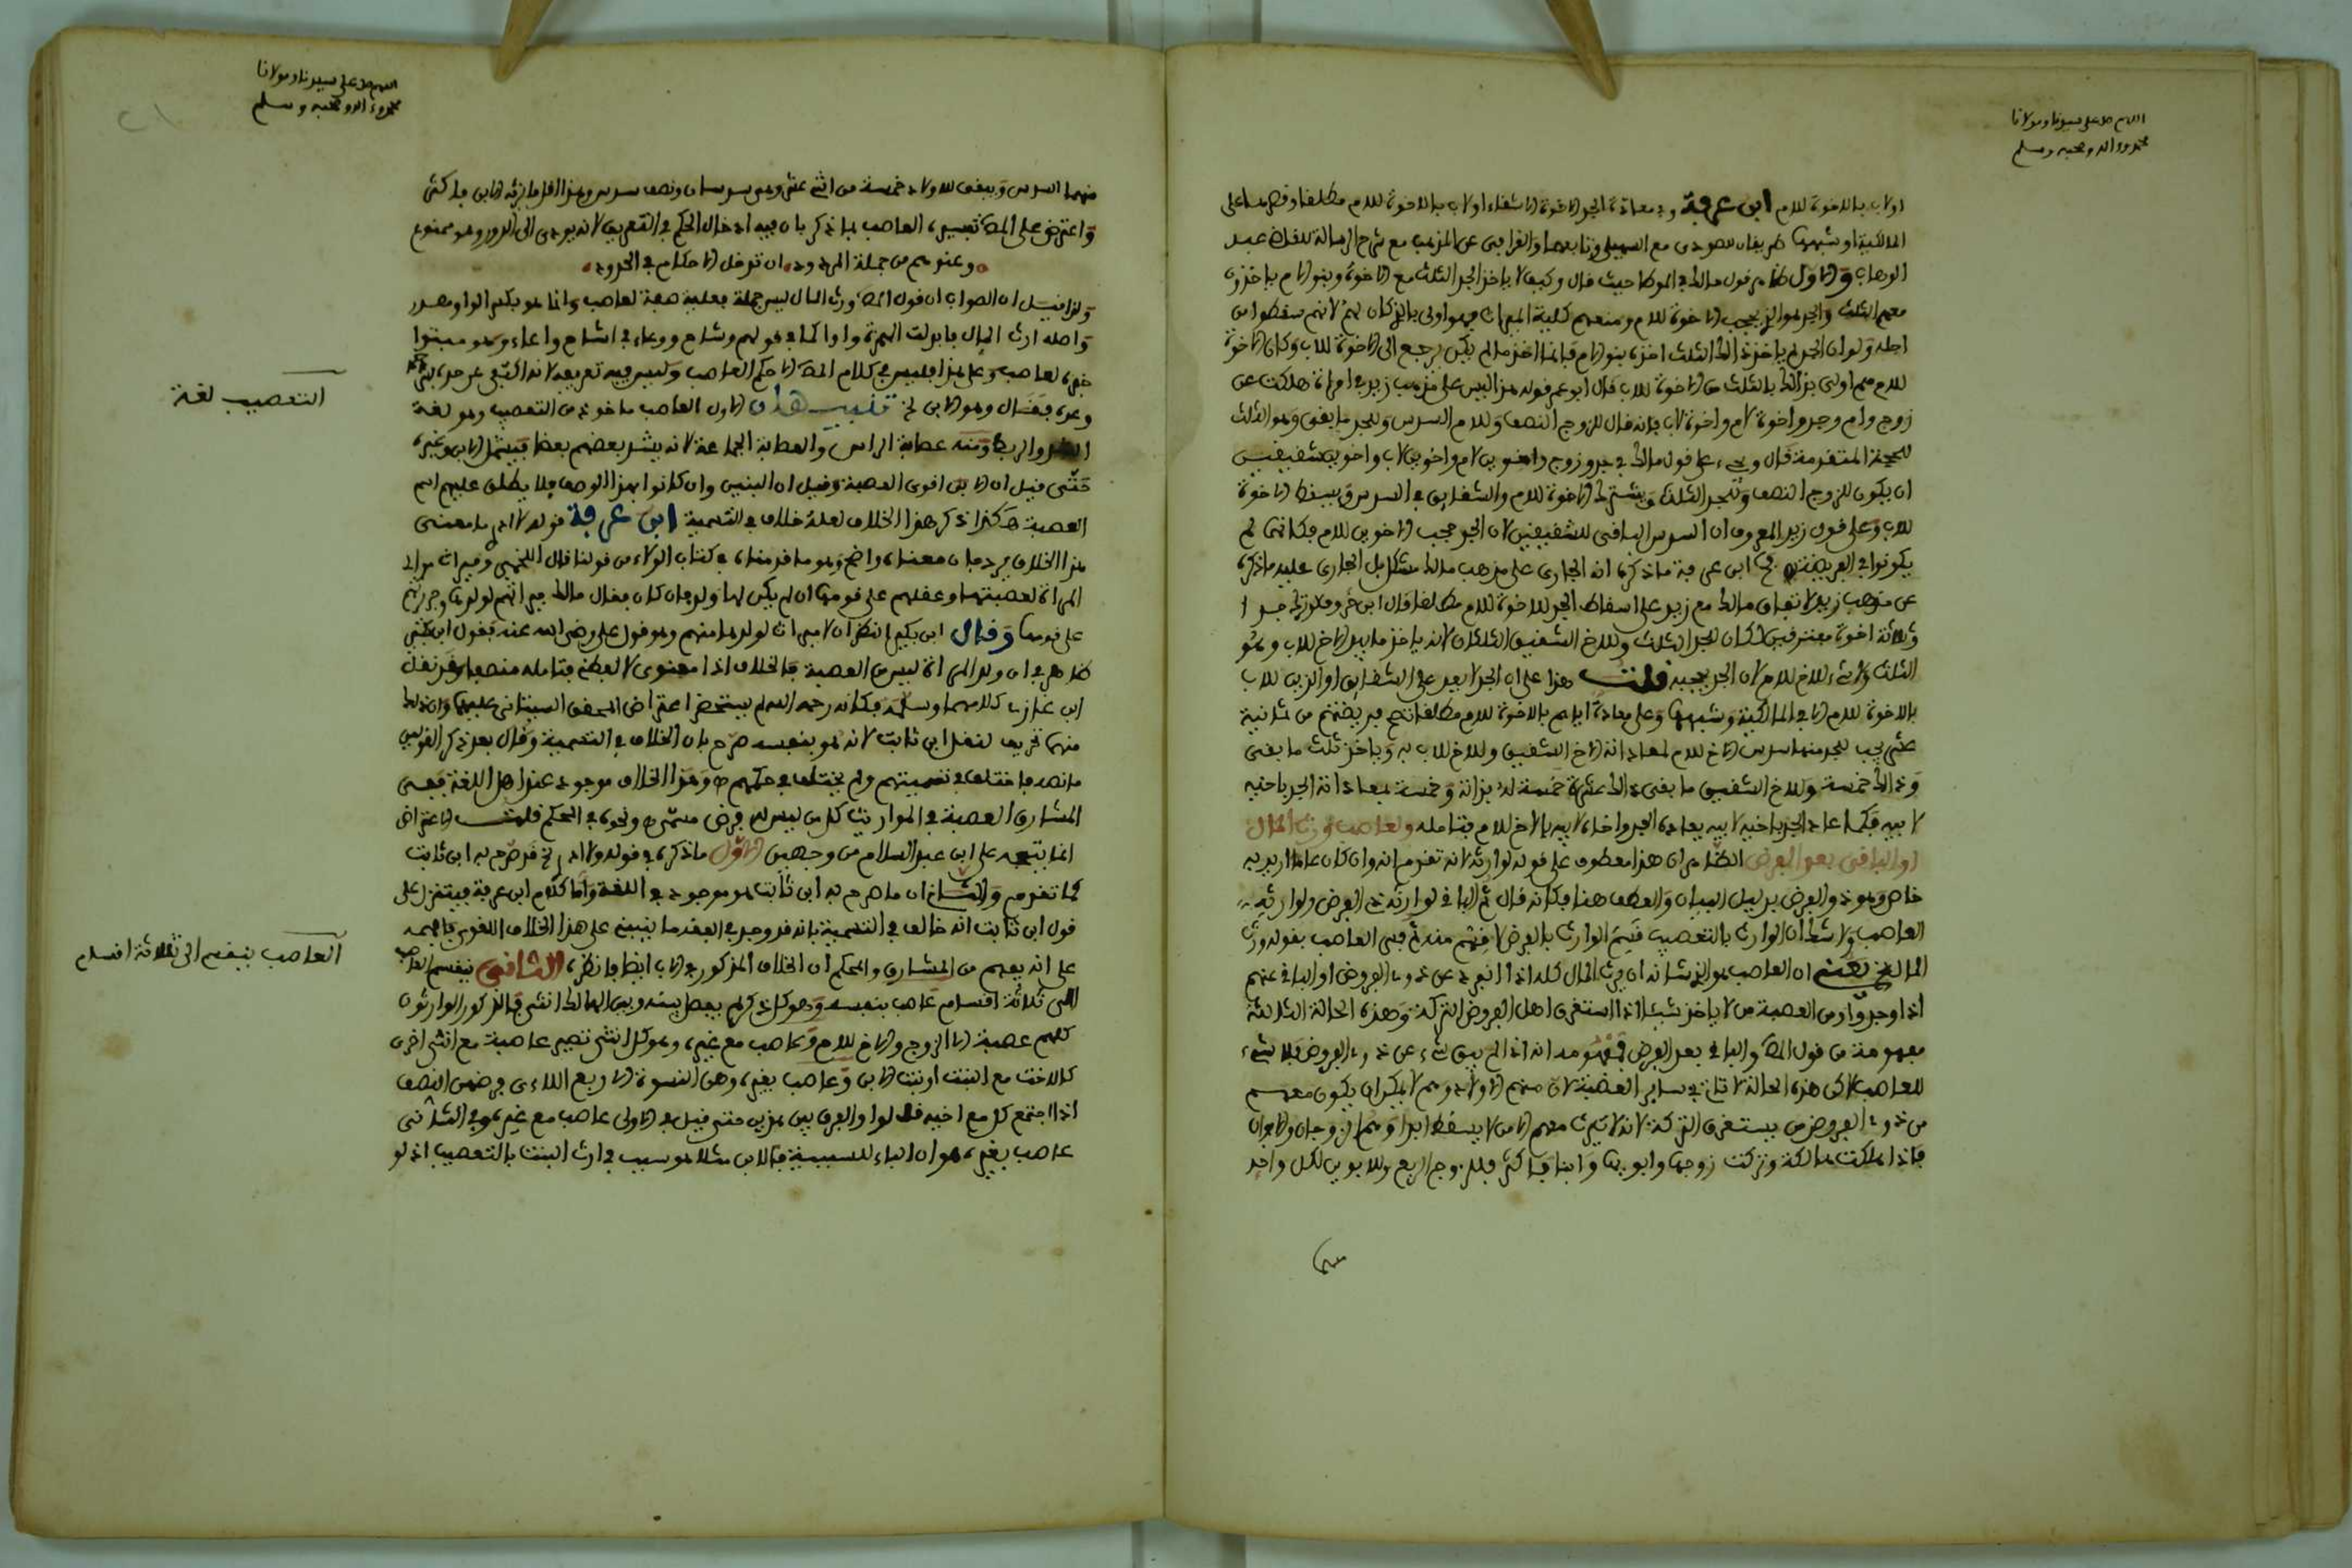 اللهم صل على سيدنا ومولانا
محمد وءاله وصحبه وسلم
اولاب بالاخوة للام ابن عرفة وفي معادة الجد الاخوة الاشقاء اولاب بالاخوة للام مطلقا وقصرها على
المالكية او شبهها طريقان للصودي مع السهيلي وتابعهما والقرافي عن المذهب مع شرح الرسالة للقاضي عبد
الوهاب والاول ظاهر قول مالك في الموطا حيث قال وكيف لا ياخذ الجد الثلث مع الاخوة وبنو الام ياخذون
معهم الثلث والجد هو الذي حجب الاخوة للام ومنعهم كلية الميراث فهو اولى بالذي كان لهم لانهم سقطوا من
اجله ولو ان الجد لم ياخذ ذلك الثلث اخذه بنو الام فانما اخذ ما لم يكن يرجع الى الاخوة للاب وكان الاخوة
للام هم اولى بذلك الثلث من الاخوة للاب قال ابو عمر قوله هذا ليس على مذهب زيد في امراة هلكت عن
زوج وام وجد واخوة لام واخوة لاب فانه قال للزوج النصف وللام السدس وللجد ما بقي وهو الثلث
للحجة المتقدمة قال ويجيء على قول مالك في جد وزوج واخوين لام واخوين لاب واخوين شقيقين
ان يكون للزوج النصف وللجد الثلث ويشترك الاخوة للام والشقايق في السدس ويسقط الاخوة
للاب وعلى قول زيد المعروف ان السدس الباقي للشقيقين لان الجد حجب الاخوين للام فكانهما لم
يكونوا في الفريضة ابن عرفة ما ذكره انه الجاري على مذهب مالك مشكل بل الجاري عليه ما ذكره
عن مذهب زيد لاتفاق مالك مع زيد على اسقاط الجد للاخوة للام مطلقا قال ابن خروف لو ترك جدا
وثلاثة اخوة مفترقين لكان للجد الثلث وللاخ الشقيق الثلثان لانه ياخذ ما بيد الاخ للاب وهو
الثلث ولا شيء للاخ للام لان الجد يحجبه قلت هذا على ان الجد لا يعد على الشقايق او الذين للاب
بالاخوة للام الا في المالكية وشبهها وعلى معادة اياهم بالاخوة للام مطلقا تصح فريضتهم من ثمانية
عشر يجب للجد منها سدس الاخ للام لمعادانه الاخ الشقيق وللاخ للاب به وياخذ ثلث ما بقي
وذلك خمسة وللاخ الشقيق ما بقي ذلك عشرة خمسة لا بزانة وخمسة بمعاداته الجد باخيه
لابيه فكما عاد الجد باخيه لابيه يعاده الجد واخاه لابيه بالاخ للام فتامله ولعاصب ورث المال
او الباقي بعد الفرض الظاهر ان هذا معطوف على قوله لوارثه لانه تقدم انه وان كان عاما اريد به
خاص وهو ذو الفرض بدليل البيان والعطف هنا فكانه قال ثم الباقي لوارثه ذي الفرض ولوارثه
العاصب ولا شك ان الوارث بالتعصيب قسيم الوارث بالفرض لا قسم منه ثم فسر العاصب بقوله ورث
المال يعني ان العاصب هو الذي شانه ان يرث المال كله اذا انفرد عن ذوي الفروض او الباقي عنهم
اذا وجدوا ومن العصبة من لا ياخذ شيئا اذا استغرق اهل الفروض التركة وهذه الحالة الثالثة
مفهومة من قول المص والباقي بعد الفرض فمفهومه انه اذا لم يبق شيء عن ذوي الفروض فلا شيء
للعاصب لاكن هذه الحالة لا تاتي في ساير العصبة لان منهم الاولاد وهم لا يمكن ان يكون معهم
من ذوي الفروض من يستغرق التركة لانه لا يرث معهم الا من لا يسقط ابدا وهم الزوجان والابوان
فاذا هلكت هالكة وتركت زوجها وابويها وابنا فاكثر فللزوج الربع وللابوين لكل واحد
منهما
اللهم صل على سيدنا ومولانا
محمد وءاله وصحبه وسلم
منهما السدس ويبقى للاولاد خمسة من اثني عشر وهي سدسان ونصف سدس وهذا اقل ما يرثه الابن فاكثر
واعترض على المص تفسيره العاصب بما ذكر بان فيه ادخال الحكم في التعريف لانه يودي الى الدور وهو ممنوع
وعندهم من جملة المردود ان تدخل الاحكام في الحدود
ولذا قيل ان الصواب ان قول المص ورث المال ليس جملة فعلية صفة لعاصب وانما هو بكسر الواو مصدر
واصله ارث المال فابدلت الهمزة واوا كما في قولهم وشاح ووعاء في اشاح واعاء وهو مبتدا
خبره لعاصب وعلى هذا فليس في كلام المص الا حكم العاصب وليس فيه تعريفه لانه اكتفى عن حده
وعده فقال وهو الابن الخ تنبيهان الاول العاصب ماخوذ من التعصيب وهو لغة
الشد والربط ومنه عصابة الراس والعصابة الجماعة لانه يشد بعضهم بعضا فيشمل الابن وغيره
حتى قيل ان الابن اقوى العصبة وقيل ان البنين وان كانوا بهذا الوصف فلا يطلق عليهم اسم
العصبة هكذا ذكر هذا الخلاف لعله خلاف في التسمية ابن عرفة قوله لا ادري ما معنى
هذا الخلاف يرد بان معناه واضح وهو ما قدمناه في كتاب الولاء من قولنا قال اللخمي وميراث موالي
المراة لعصبتها وعقلهم على قومها ان لم يكن لها ولد وان كان فقال مالك ميراثهم لولدها وجريرتهم
على قومها وقال ابن بكير النظر ان لا ميراث لولدها منهم وهو قول علي رضي الله عنه فقول ابن بكير
ظاهر في ان ولد المراة ليس من العصبة فالخلاف اذا معنوي لا لفظي فتامله منصفا وقد نقل
ابن غازي كلامهما وسلمه فكانه رحمه الله لم يستحضر اعتراض المحقق السبتاني عليهما وان ذلك
منهما تحريف لنقل ابن ثابت لانه هو بنفسه صرح بان الخلاف في التسمية وقال بعد ذكر القولين
ما نصه فاختلف في تسميتهم ولم يختلف في حكمهم ص وهذا الخلاف موجود عند اهل اللغة ففي
المشارق العصبة في المواريث كل من ليس له فرض مسمى ص ونحوه في المحكم قلت الاعتراض
انما يتجه على ابن عبد السلام من وجهين الاول ما ذكره في قوله ولا ادري الخ قد صرح به ابن ثابت
كما تقدم والثاني ان ما صرح به ابن ثابت هو موجود في اللغة واما كلام ابن عرفة فيتنزل على
قول ابن ثابت انه خالف في التسمية بانه قد وجد في الفقه ما ينبني على هذا الخلاف اللغوي فافهمه
على انه يفهم من المشارق والمحكم ان الخلاف المذكور في الاب ايضا فانظره الثاني ينقسم العاصب
الى ثلاثة اقسام عاصب بنفسه وهو كل ذكر لم يفصل بينه وبين الهالك انثى فالذكور الوارثون
كلهم عصبة الا الزوج والاخ للام وعاصب مع غيره وهو كل انثى تصير عاصبة مع انثى اخرى
كالاخت مع البنت او بنت الابن وعاصب بغيره وهن النسوة الاربع اللاءي فرضهن النصف
اذا اجتمع كل مع اخيه قالوا والفرق بين هذين حتى قيل في الاولى عاصب مع غيره وفي الثاني
عاصب بغيره هو ان الباء للسببية فالابن مثلا هو سبب في ارث البنت بالتعصيب اذ لو
التعصيب لغة
العاصب ينقسم الى ثلاثة اقسام